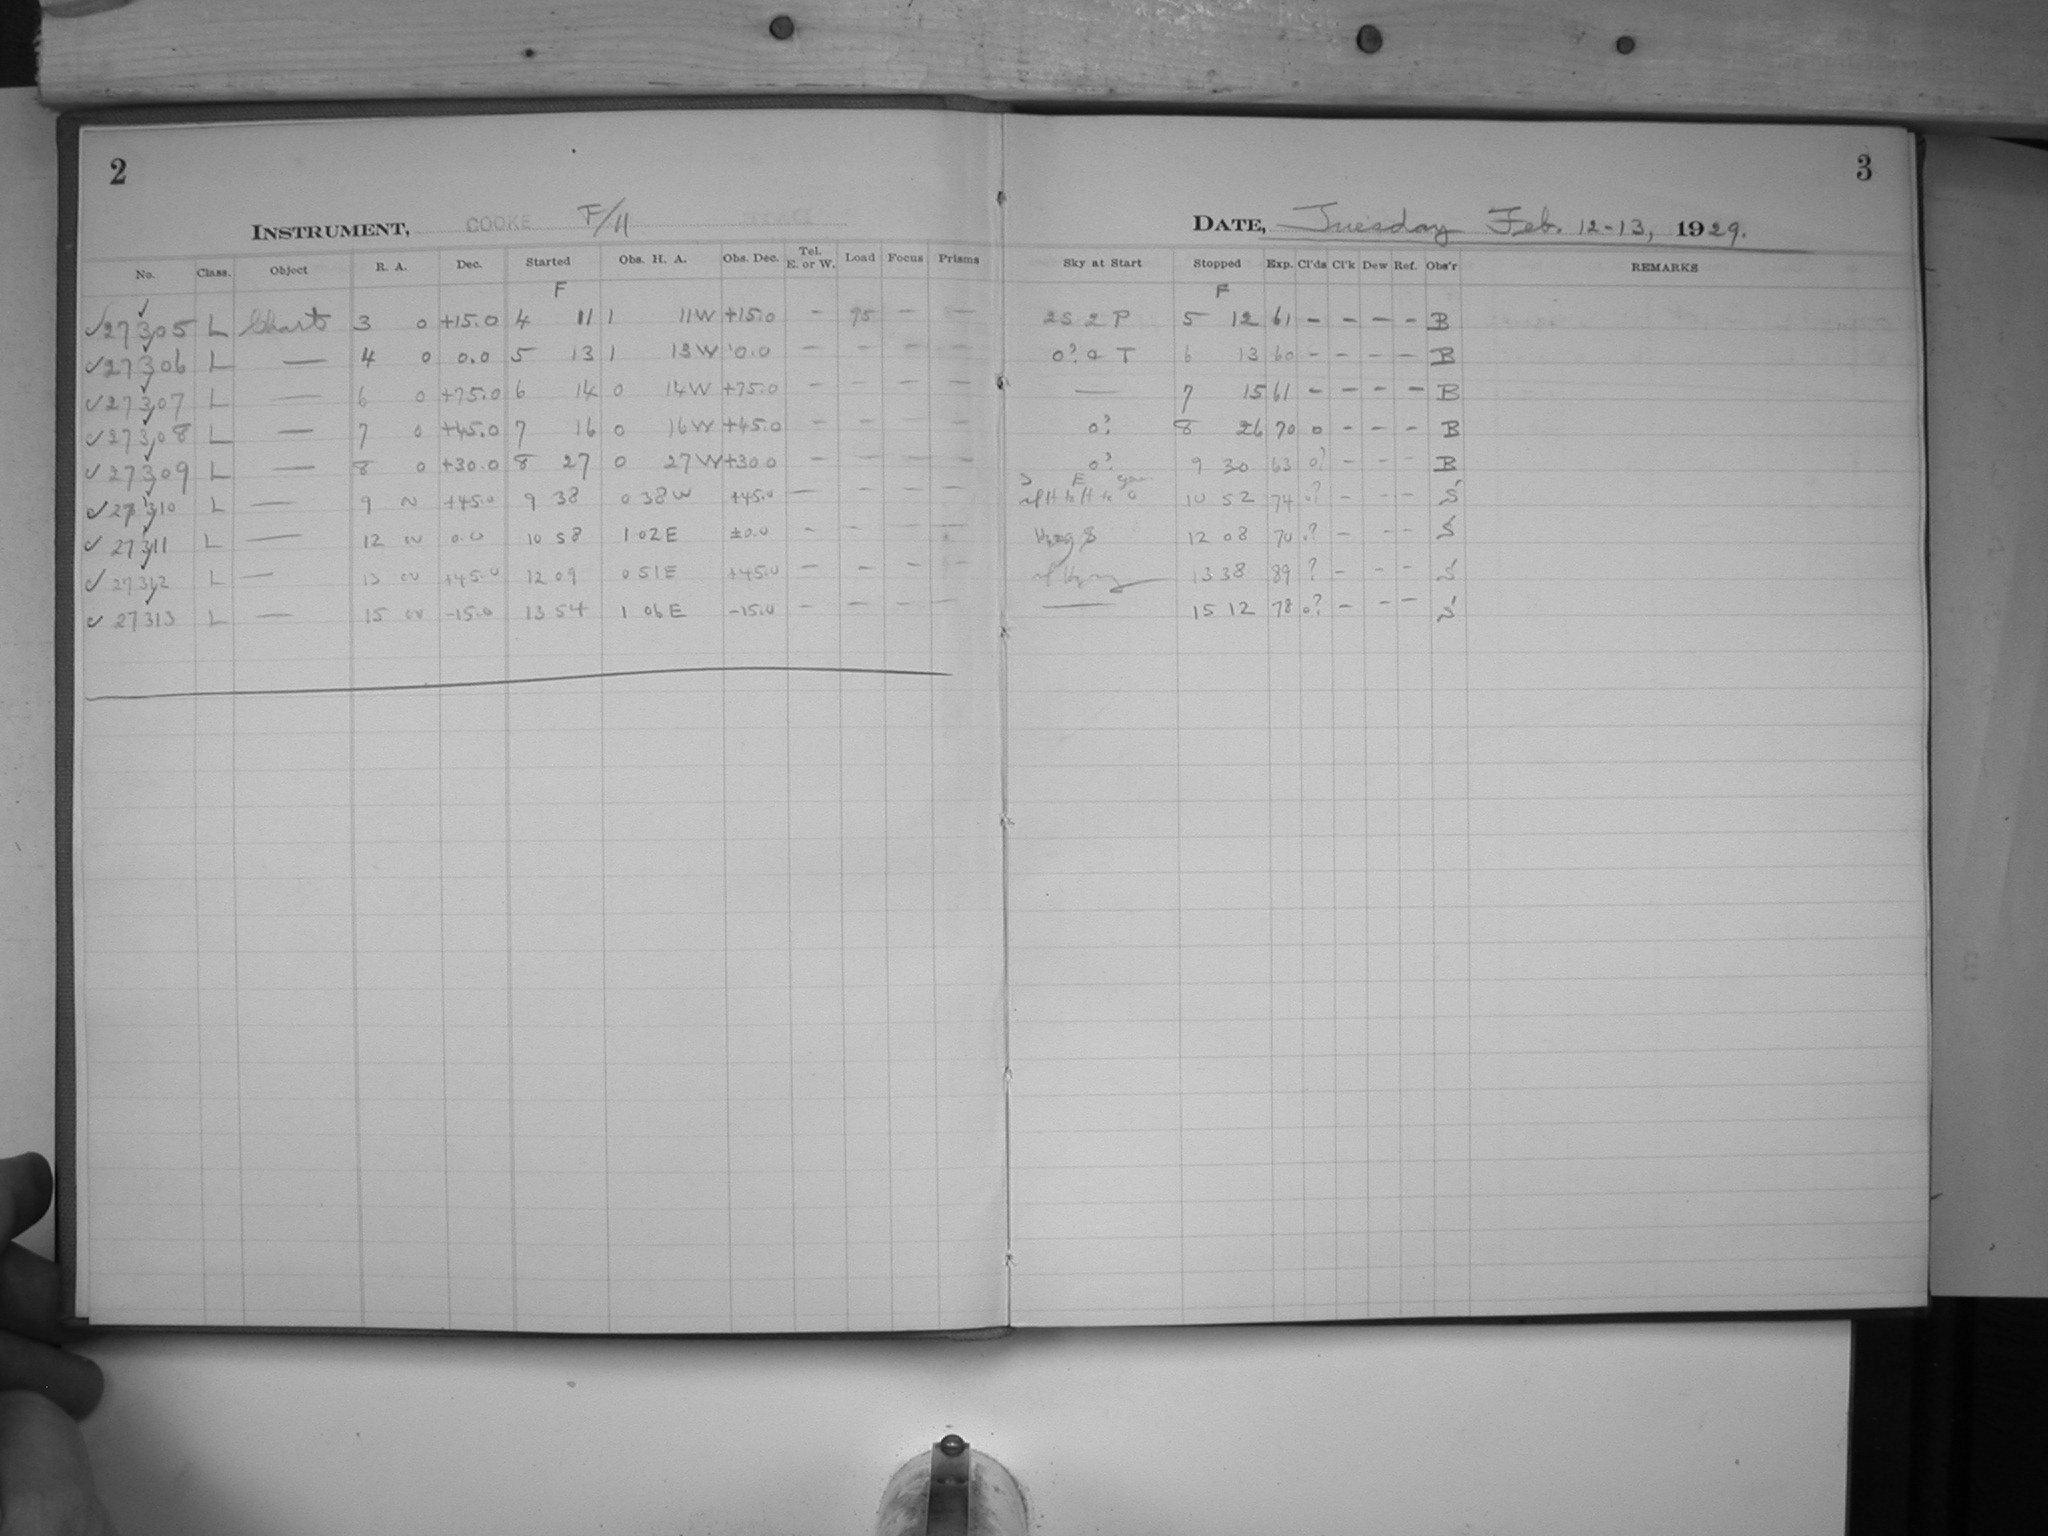 2
INSTRUMENT, COOKE F/11
No. Class. Object R. A. Dec. Started Obs. H. A. Obs. Dec. Tel. E. or W. Load Focus Prisms
F
✓27305 L Chart 3 0 +15.0 4 11 1 11W +15.0 – 95 – –
✓27306 L — 4 0 0.0 5 13 1 13W 0.0 – – – –
✓27307 L — 6 0 +75.0 6 14 0 14W +75.0 – – – –
✓27308 L — 7 0 +45.0 7 16 0 16W +45.0 – – – –
✓27309 L — 8 0 +30.0 8 27 0 27W +30.0 – – – –
✓27310 L — 9 +45.0 9 38 0 38W +45.0 – – – –
✓27311 L — 12 0.0 10 58 1 02E ±0.0 – – – –
✓27312 L — 13 +45.0 12 09 0 51E +45.0 – – – –
✓27313 L — 15 -15.0 13 54 1 06E -15.0 – – – –
3
DATE, Tuesday Feb. 12-13, 1929.
Sky at Start Stopped Exp. Cl'ds Cl'k Dew Ref. Obs'r REMARKS
F
2S 2 P 5 12 61 – – – – B
0? a T 6 13 60 – – – – B
— 7 15 61 – – – – B
0? 8 26 70 0 – – – B
0? 9 30 63 0? – – – B
10 52 74 0? – – – S
12 08 70 0? – – – S
13 38 89 ? – – – S
— 15 12 78 0? – – – S